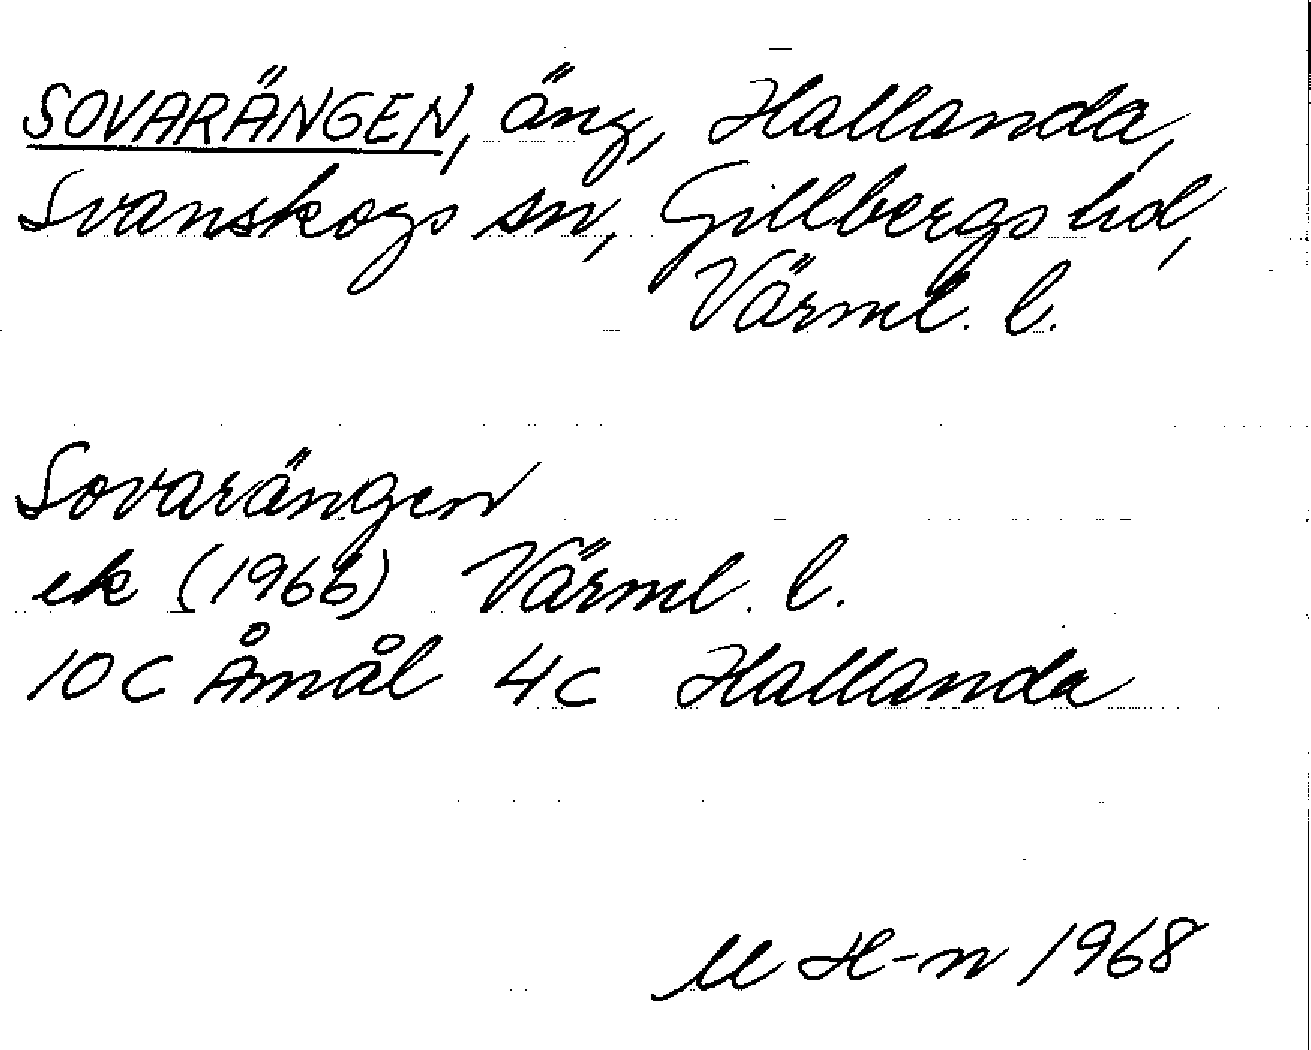 SOVARÄNGEN, äng, Hallanda,
Svanskogs sn, Gillbergs hd,
Värml. l.
Sovarängen
ek (1966) Värml. l.
10 C Åmål 4c Hallanda
M H-n 1968